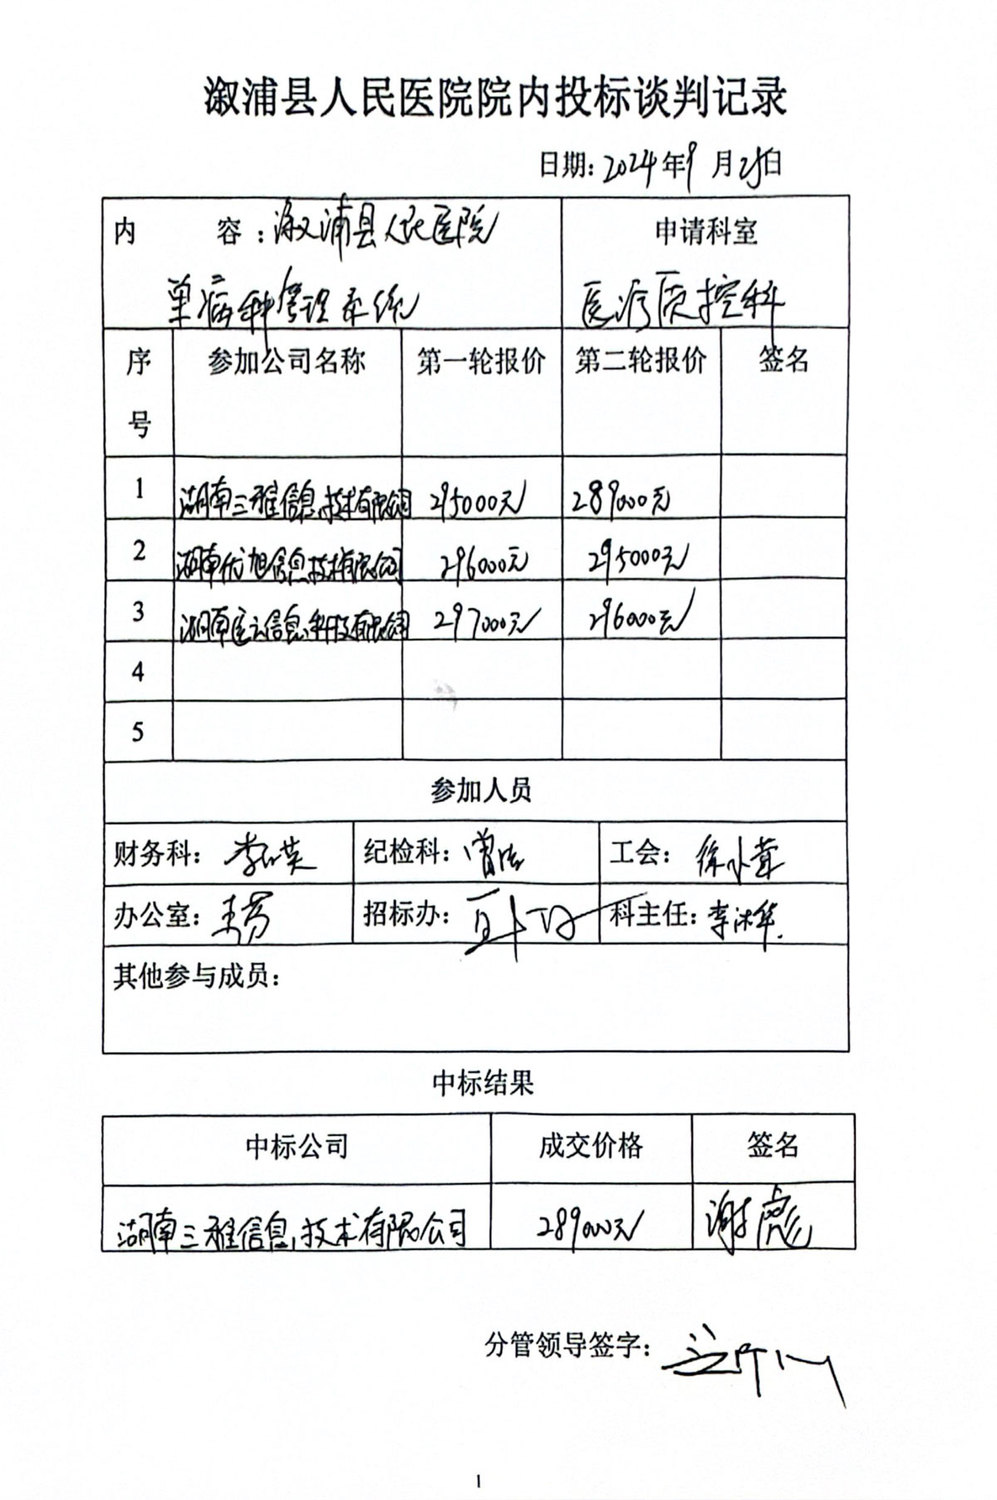 溆浦县人民医院院内投标谈判记录
日期: 2024年9月25日
内 容: 溆浦县人民医院 申请科室
单病种管理系统 医疗质控科
序号 参加公司名称 第一轮报价 第二轮报价 签名
1 湖南三雅信息技术有限公司 295000元 289000元
2 湖南优旭信息技术有限公司 296000元 295000元
3 湖南医云信息科技有限公司 297000元 296000元
4
5
参加人员
财务科: 纪检科: 工会: 徐小茸
办公室: 招标办: 科主任: 李沐华
其他参与成员:
中标结果
中标公司 成交价格 签名
湖南三雅信息技术有限公司 289000元 谢彪
分管领导签字:
1